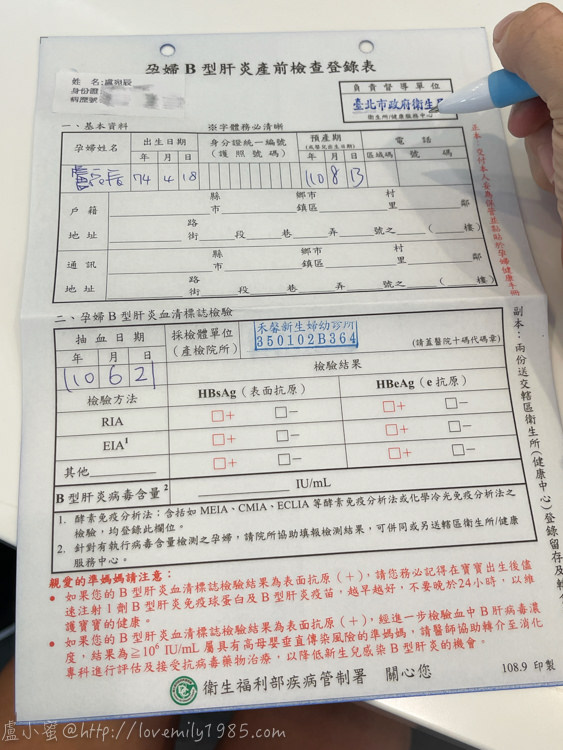 孕婦B型肝炎產前檢查登錄表
姓 名:盧宛辰
身份證
病歷號
負責督導單位
臺北市政府衛生
衛生所/健康服務中心
一、基本資料 ※字體務必清晰
孕婦姓名 出生日期 年 月 日 身分證統一編號 (護照號碼) 預產期 (或嬰兒出生日期) 年 月 日 電話 區域碼 號碼
74 4 18 110 8 13
戶籍地址 縣市 鄉市鎮區 村里 鄰
路街 段 巷 弄 號之 ( 樓)
通訊地址 縣市 鄉市鎮區 村里 鄰
路街 段 巷 弄 號之 ( 樓)
二、孕婦B型肝炎血清標誌檢驗
抽血日期 採檢體單位 (產檢院所) 禾馨新生婦幼診所 350102B364 (請蓋醫院十碼代碼章)
年 月 日
110 6 21 檢驗結果
檢驗方法 HBsAg(表面抗原) HBeAg(e抗原)
RIA □+ □− □+ □−
EIA¹ □+ □− □+ □−
其他 □+ □− □+ □−
B型肝炎病毒含量² IU/mL
1. 酵素免疫分析法:含括如MEIA、CMIA、ECLIA等酵素免疫分析法或化學冷光免疫分析法之
檢驗,均登錄此欄位。
2. 針對有執行病毒含量檢測之孕婦,請院所協助填報檢測結果,可併同或另送轄區衛生所/健康
服務中心。
親愛的準媽媽請注意:
● 如果您的B型肝炎血清標誌檢驗結果為表面抗原(+),請您務必記得在寶寶出生後儘
速注射1劑B型肝炎免疫球蛋白及B型肝炎疫苗,越早越好,不要晚於24小時,以維
護寶寶的健康。
● 如果您的B型肝炎血清標誌檢驗結果為表面抗原(+),經進一步檢驗血中B肝病毒濃
度,結果為≧10⁶ IU/mL屬具有高母嬰垂直傳染風險的準媽媽,請醫師協助轉介至消化
專科進行評估及接受抗病毒藥物治療,以降低新生兒感染B型肝炎的機會。
衛生福利部疾病管制署 關心您
108.9 印製
正本:交付本人妥為保管並黏貼於孕婦健康手冊
副本:兩份送交轄區衛生所(健康中心)登錄留存及
盧小蜜@http://lovemily1985.com